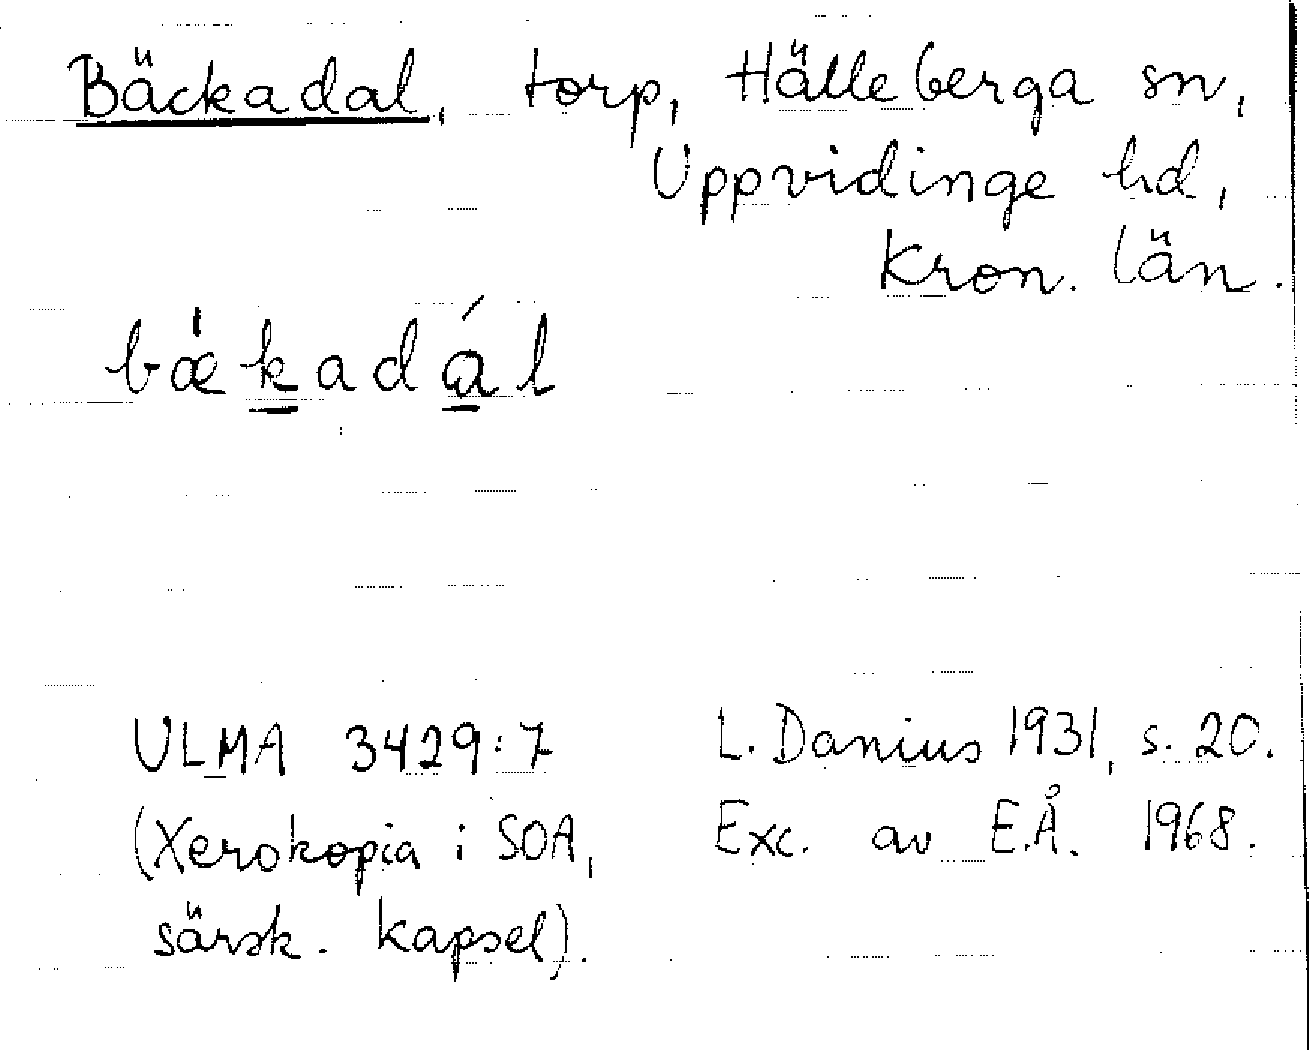 Bäckadal, torp, Hälleberga sn,
Uppvidinge hd,
Kron. län.
bæ̀kadál
ULMA 3429:7
(Xerokopia i SOA,
särsk. kapsel).
L. Danius 1931, s. 20.
Exc. av E.Å. 1968.